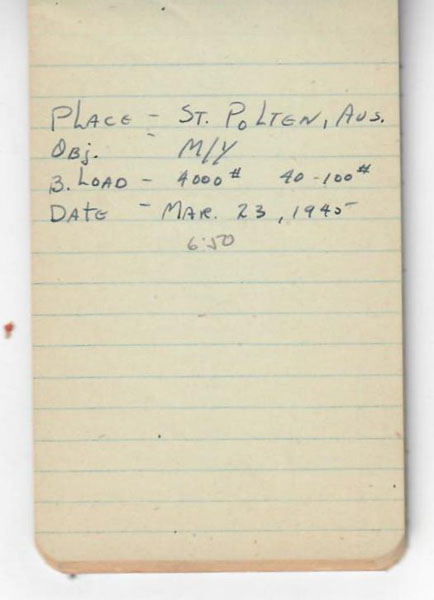 PLACE - ST. POLTEN, AUS.
OBJ. - M/Y
B. LOAD - 4000# 40-100#
DATE - MAR. 23, 1945
6:50